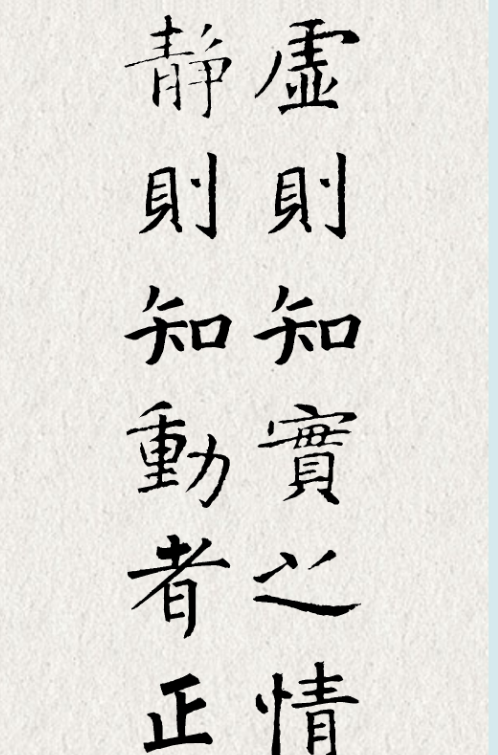 虛則知實之情
靜則知動者正